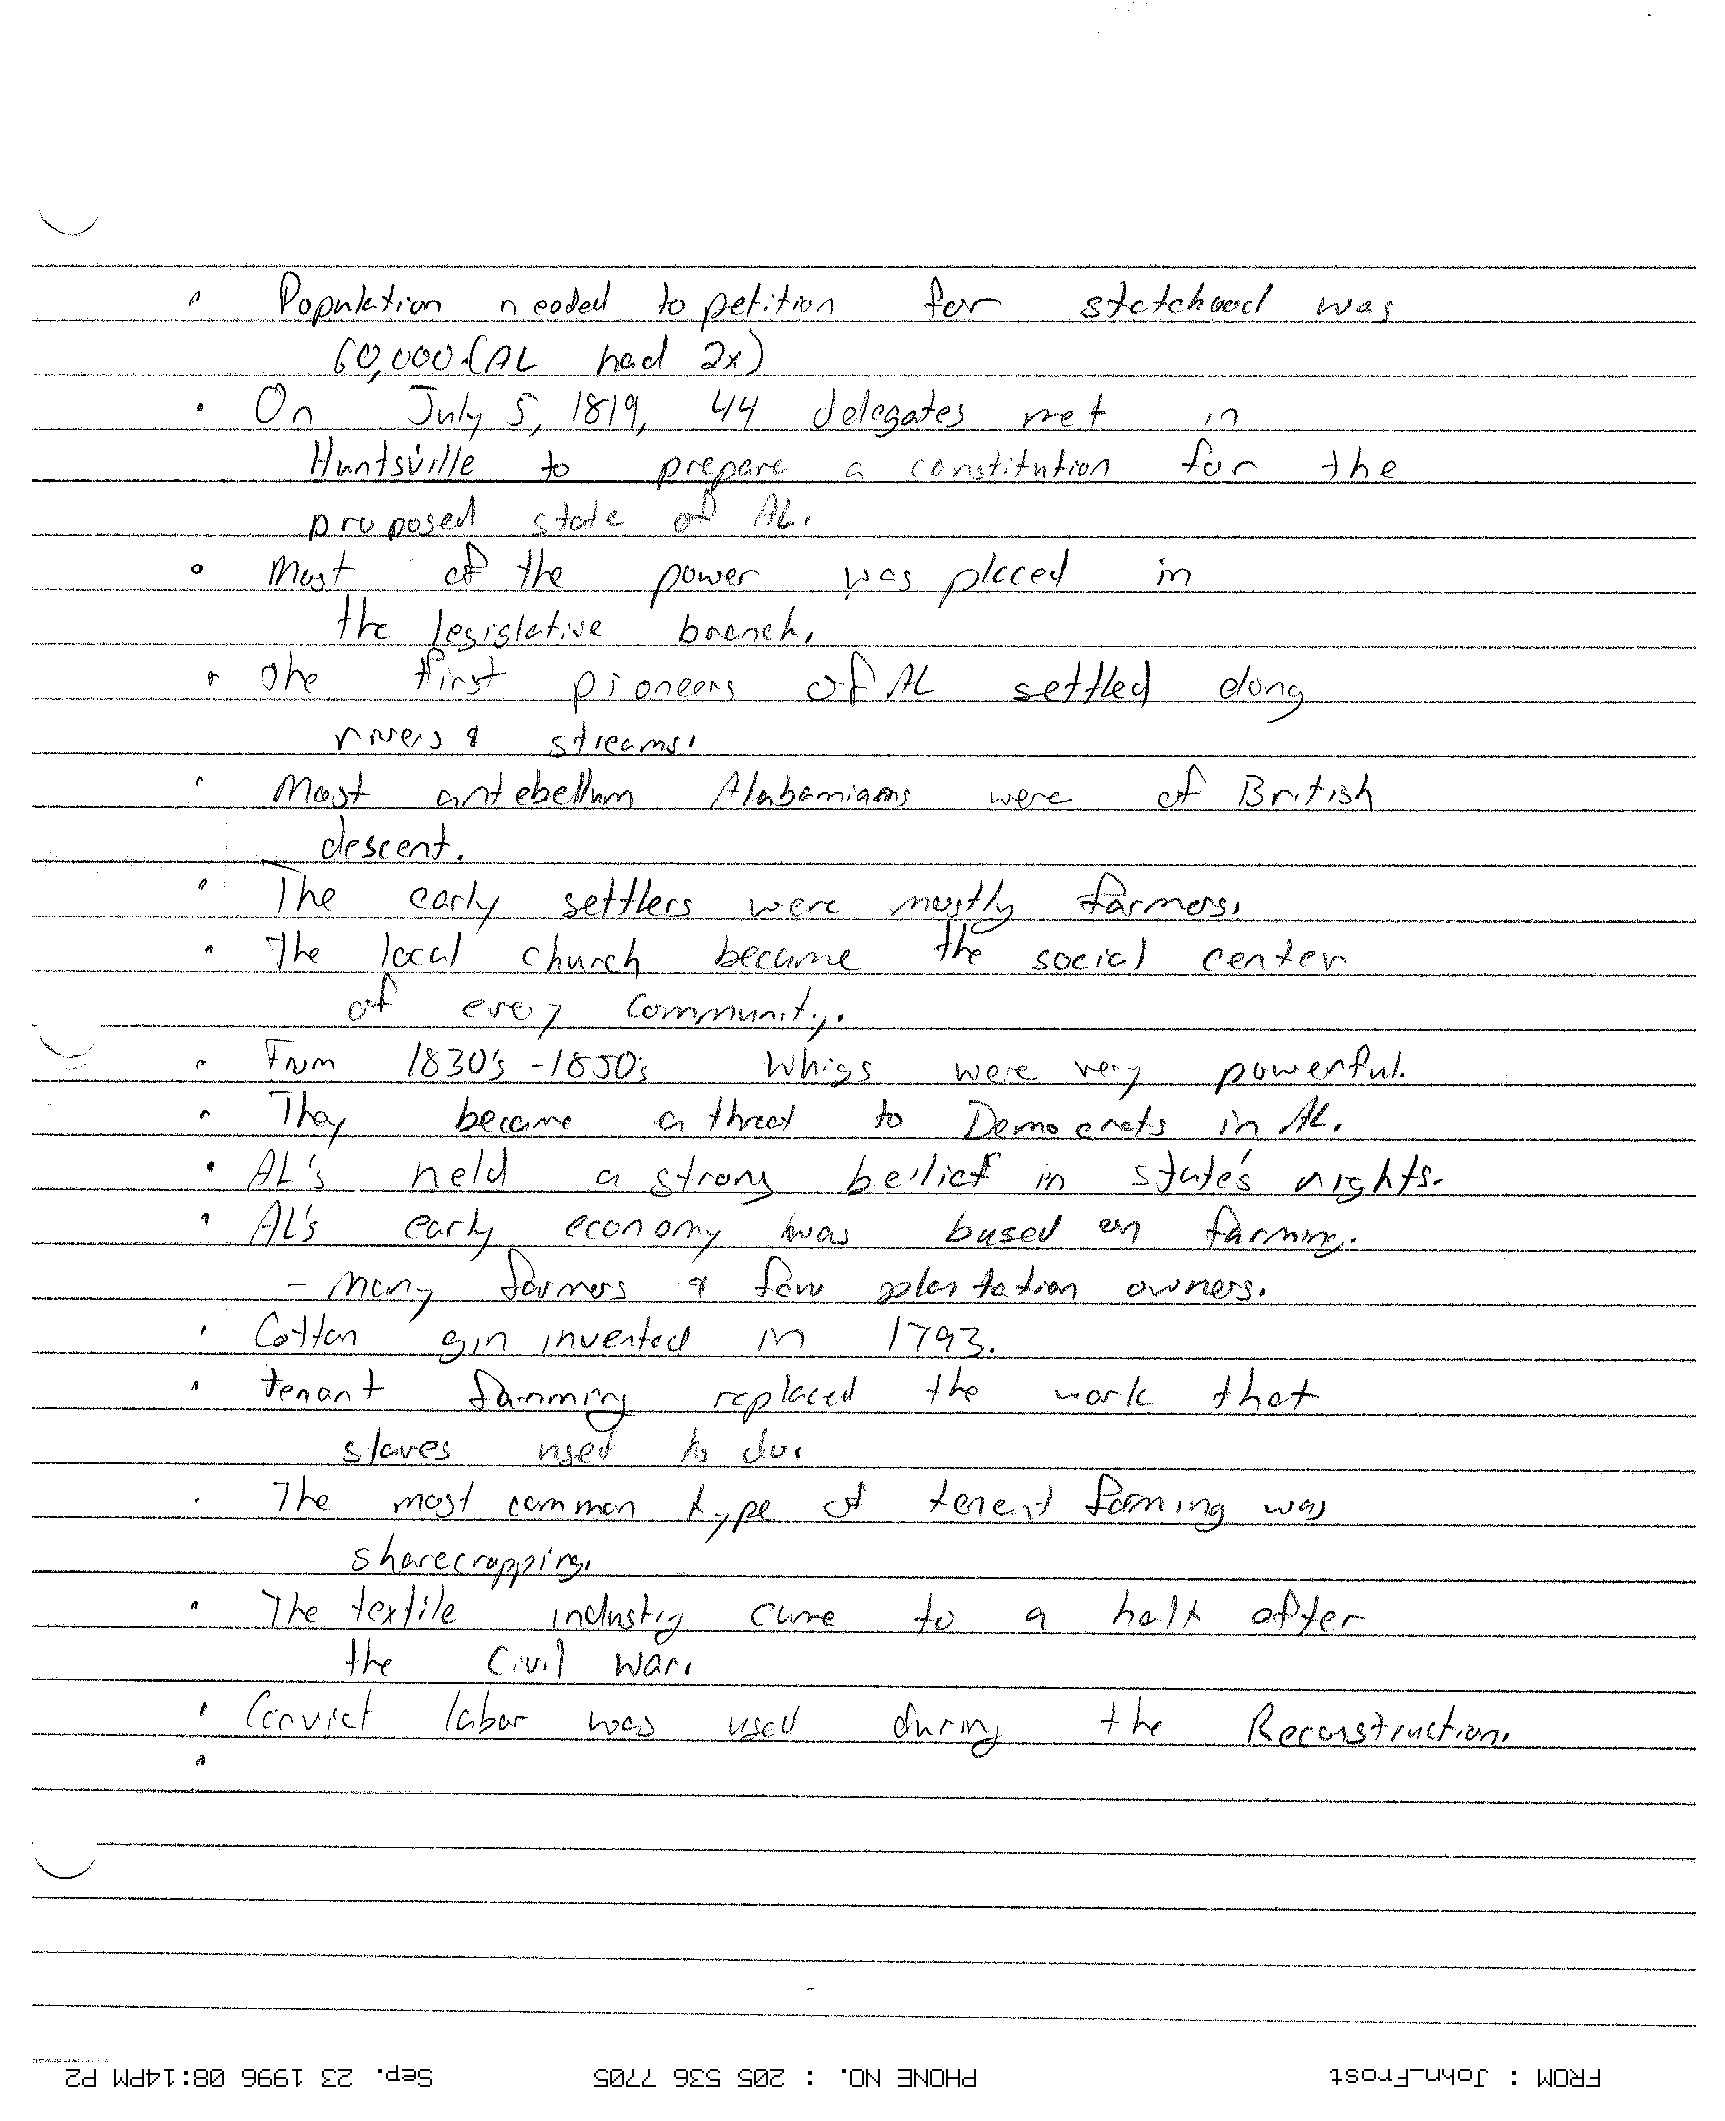 • Population needed to petition for statehood was
60,000 (AL had 2x)
• On July 5, 1819, 44 delegates met in
Huntsville to prepare a constitution for the
proposed state of AL.
• Most of the power was placed in
the legislative branch.
• The first pioneers of AL settled along
rivers & streams.
• Most antebellum Alabamians were of British
descent.
• The early settlers were mostly farmers.
• The local church became the social center
of every community.
• From 1830's - 1850's Whigs were very powerful.
• They became a threat to Democrats in AL.
• AL's held a strong beilief in state's rights.
• AL's early economy was based on farming.
- many farmers & few plantation owners.
• Cotton gin invented in 1793.
• tenant farming replaced the work that
slaves used to do.
• The most common type of tenent farming was
sharecropping.
• The textile industry came to a halt after
the Civil War.
• Convict labor was used during the Reconstruction.
•
FROM : John_Frost PHONE NO. : 205 536 7705 Sep. 23 1996 08:14PM P2